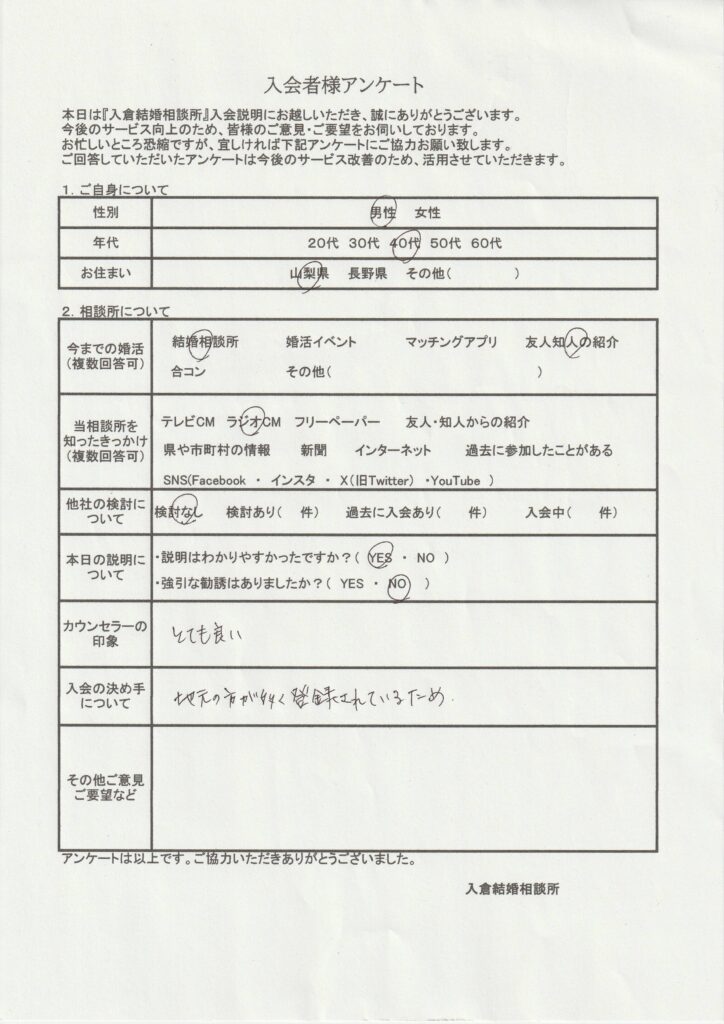 入会者様アンケート
本日は『入倉結婚相談所』入会説明にお越しいただき、誠にありがとうございます。
今後のサービス向上のため、皆様のご意見・ご要望をお伺いしております。
お忙しいところ恐縮ですが、宜しければ下記アンケートにご協力お願い致します。
ご回答していただいたアンケートは今後のサービス改善のため、活用させていただきます。
1. ご自身について
性別 男性 女性
年代 20代 30代 40代 50代 60代
お住まい 山梨県 長野県 その他( )
2. 相談所について
今までの婚活
(複数回答可)
結婚相談所 婚活イベント マッチングアプリ 友人知人の紹介
合コン その他( )
当相談所を
知ったきっかけ
(複数回答可)
テレビCM ラジオCM フリーペーパー 友人・知人からの紹介
県や市町村の情報 新聞 インターネット 過去に参加したことがある
SNS(Facebook ・ インスタ ・ X(旧Twitter) ・YouTube )
他社の検討に
ついて
検討なし 検討あり( 件) 過去に入会あり( 件) 入会中( 件)
本日の説明に
ついて
・説明はわかりやすかったですか?( YES ・ NO )
・強引な勧誘はありましたか?( YES ・ NO )
カウンセラーの
印象
とても良い
入会の決め手
について
地元の方が多く登録されているため.
その他ご意見
ご要望など
アンケートは以上です。ご協力いただきありがとうございました。
入倉結婚相談所